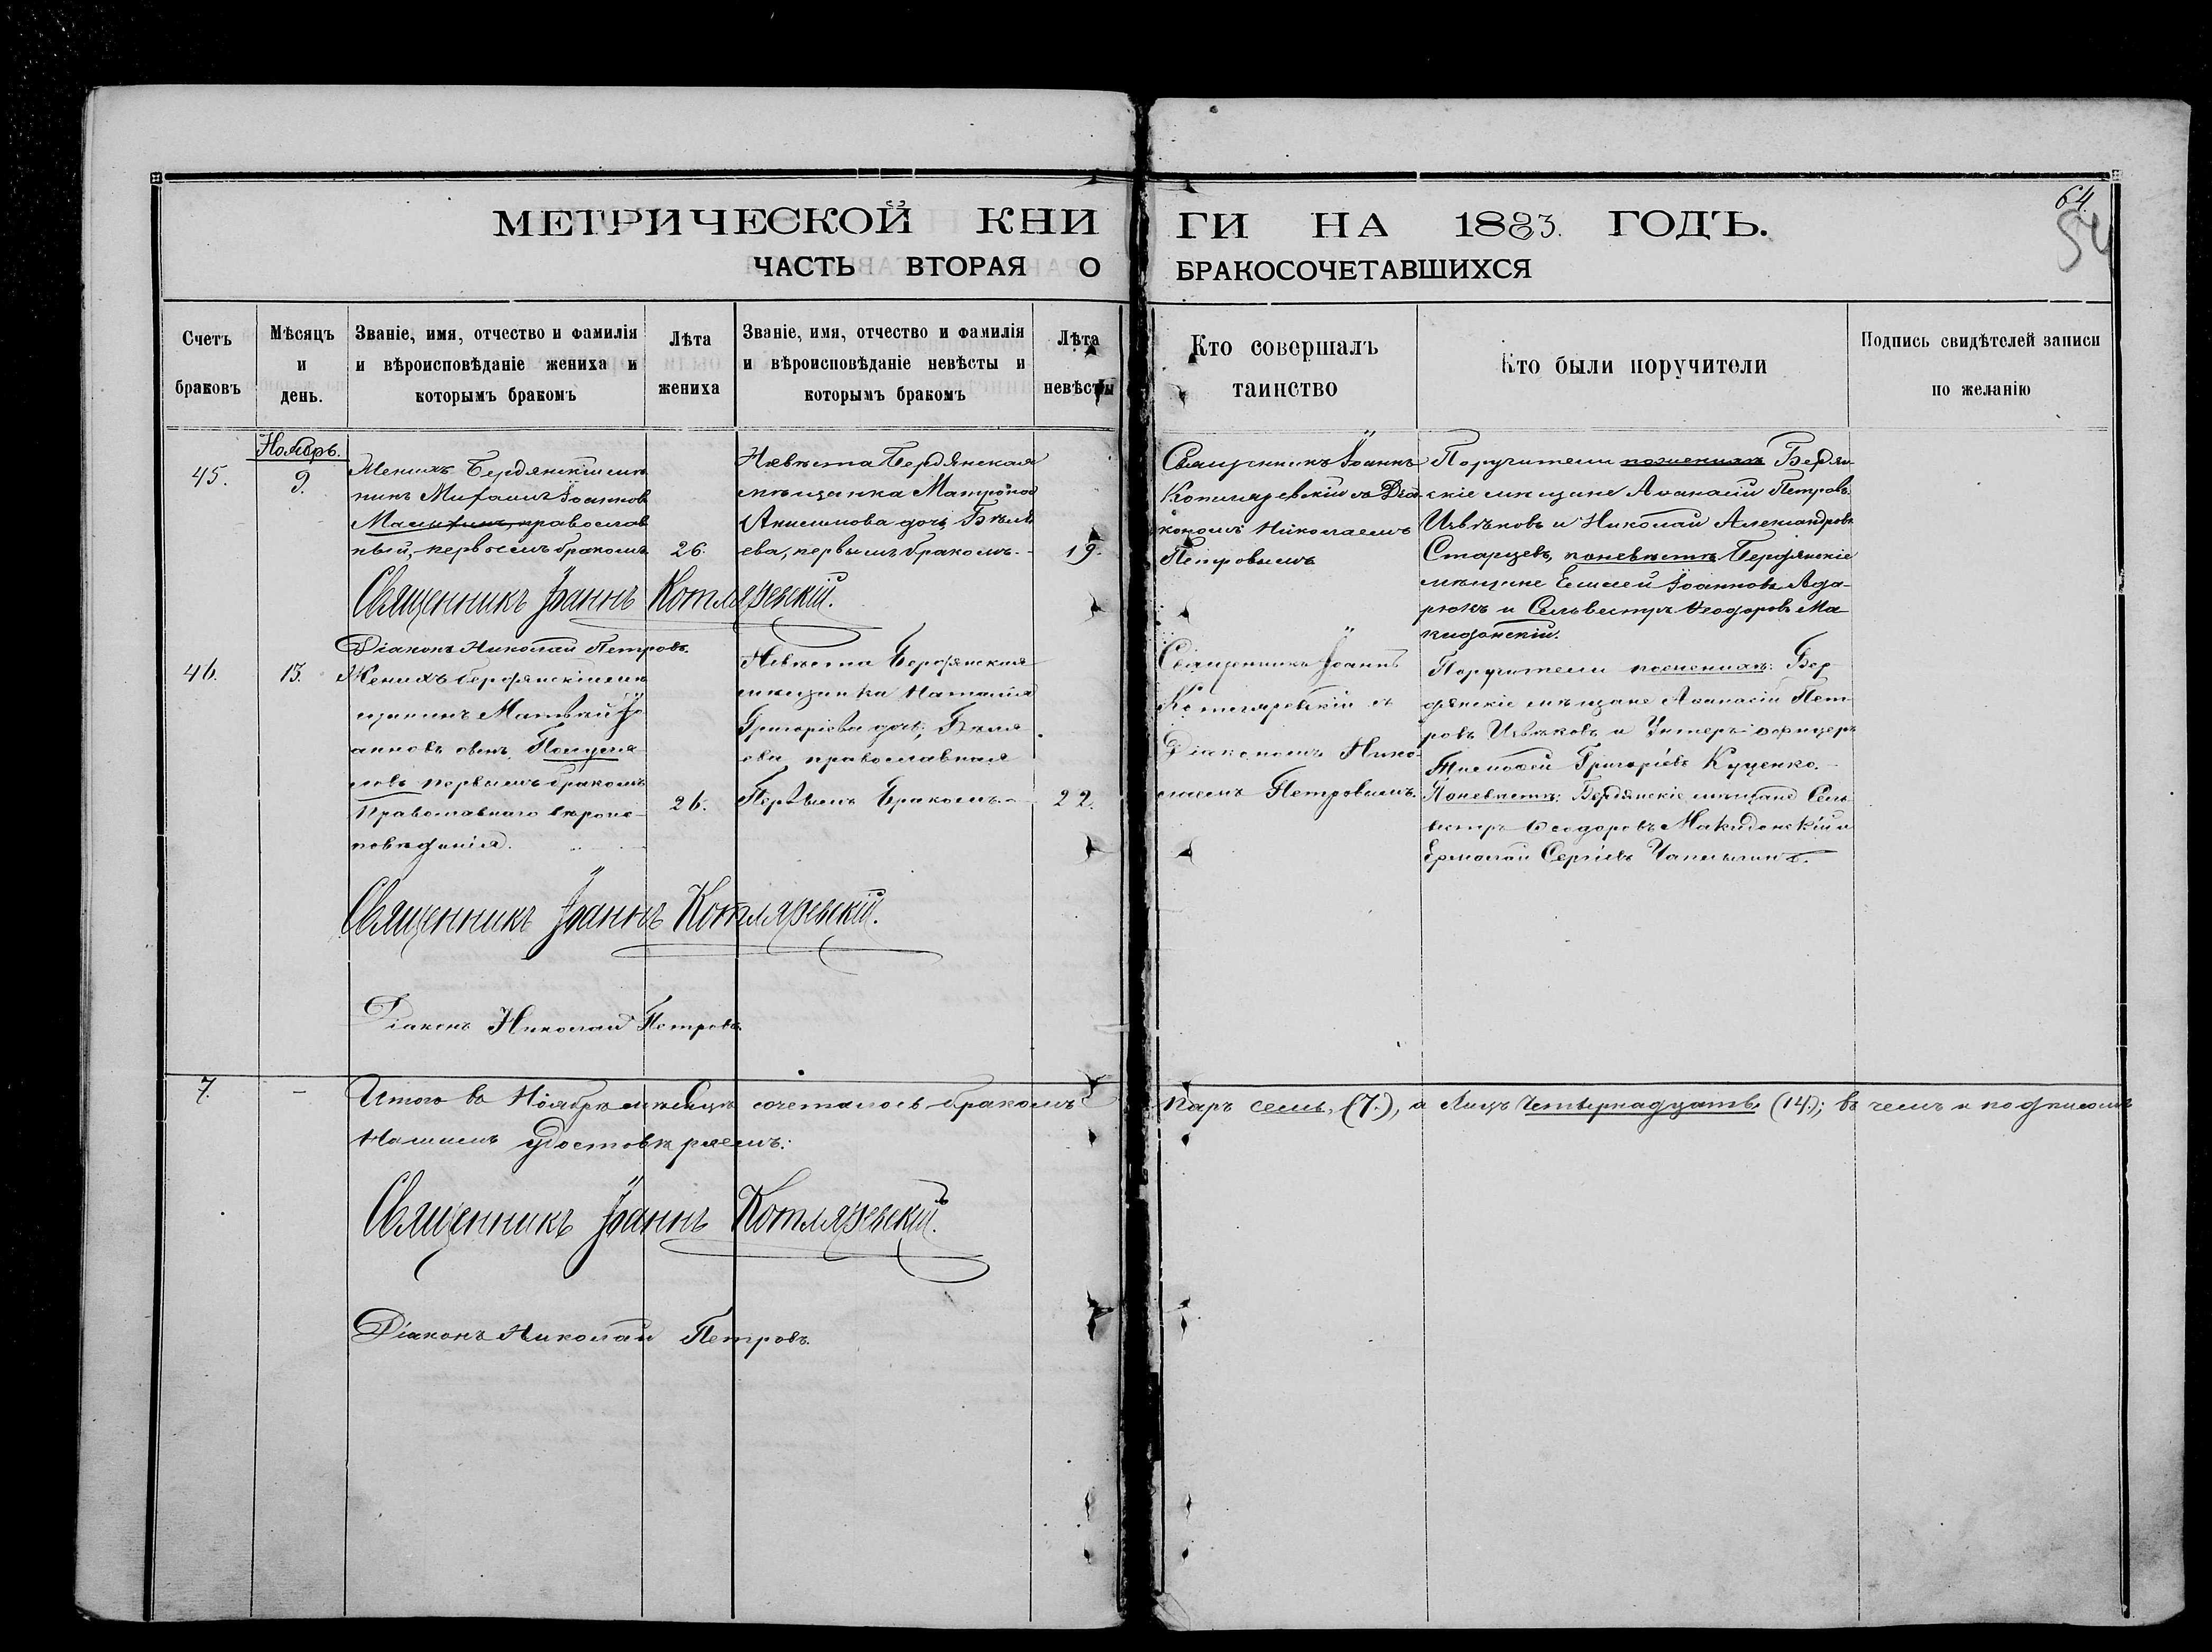 64.
54
МЕТРИЧЕСКОЙ КНИ
ГИ НА 1883. ГОДЪ.
ЧАСТЬ ВТОРАЯ О
БРАКОСОЧЕТАВШИХСЯ
Счетъ
браковъ
Мѣсяцъ
и
день.
Званіе, имя, отчество и фамилія
и вѣроисповѣданіе жениха и
которымъ бракомъ
Лѣта
жениха
Званіе, имя, отчество и фамилія
и вѣроисповѣданіе невѣсты и
которымъ бракомъ
Лѣта
невѣсты
Кто совершалъ
таинство
Кто были поручители
Подпись свидѣтелей записи
по желанію
Ноябрь.
45.
9.
Женихъ Бердянскій мѣща
нинъ Михаилъ Іоанновъ
православ
ный, первымъ бракомъ
26.
Невѣста Бердянская
мѣщанка Матрона
Анисимова дочь Бѣля
ева, первымъ бракомъ.
19.
Священникъ Іоаннъ
Котляревскій съ Діа
кономъ Николаемъ
Петровымъ
Поручители по женихѣ Бердян
скіе мѣщане Аѳанасій Петровъ
Ивлѣковъ и Николай Александровъ
Старцевъ, по невѣстѣ Бердянскіе
мѣщане Іоанновъ
и Сельвестръ Ѳеодоровъ Ма
кидонскій.
Священникъ Іоаннъ Котляревскій.
Діаконъ Николай Петровъ.
46.
13.
Женихъ Бердянскій мѣ
щанинъ Матвѣй Іо
анновъ сынъ
первымъ бракомъ
Православнаго вѣроис
повѣданія.
26.
Невѣста Бердянская
мѣщанка Наталія
Григоріева дочь Бѣля
ева православная
Первымъ бракомъ.
22.
Священникъ Іоаннъ
Котляревскій съ
Діакономъ Нико
лаемъ Петровымъ.
Поручители по женихѣ: Бер
дянскіе мѣщане Аѳанасій Пет
ровъ Ивлѣковъ и Унтеръ-офицеръ
Тимоѳей Григоріевъ Куценко.
По невѣстѣ: Бердянскіе мѣщане Сель
вестръ Ѳеодоровъ Макидонскій и
Ермолай Сергіевъ Чаплыгинъ.
Священникъ Іоаннъ Котляревскій.
Діаконъ Николай Петровъ.
7.
Итого въ Ноябрѣ мѣсяцѣ сочеталось бракомъ
паръ семь, (7.), а лицъ четырнадцать (14.); въ чемъ и подписомъ
Нашимъ удостовѣряемъ:
Священникъ Іоаннъ Котляревскій.
Діаконъ Николай Петровъ.